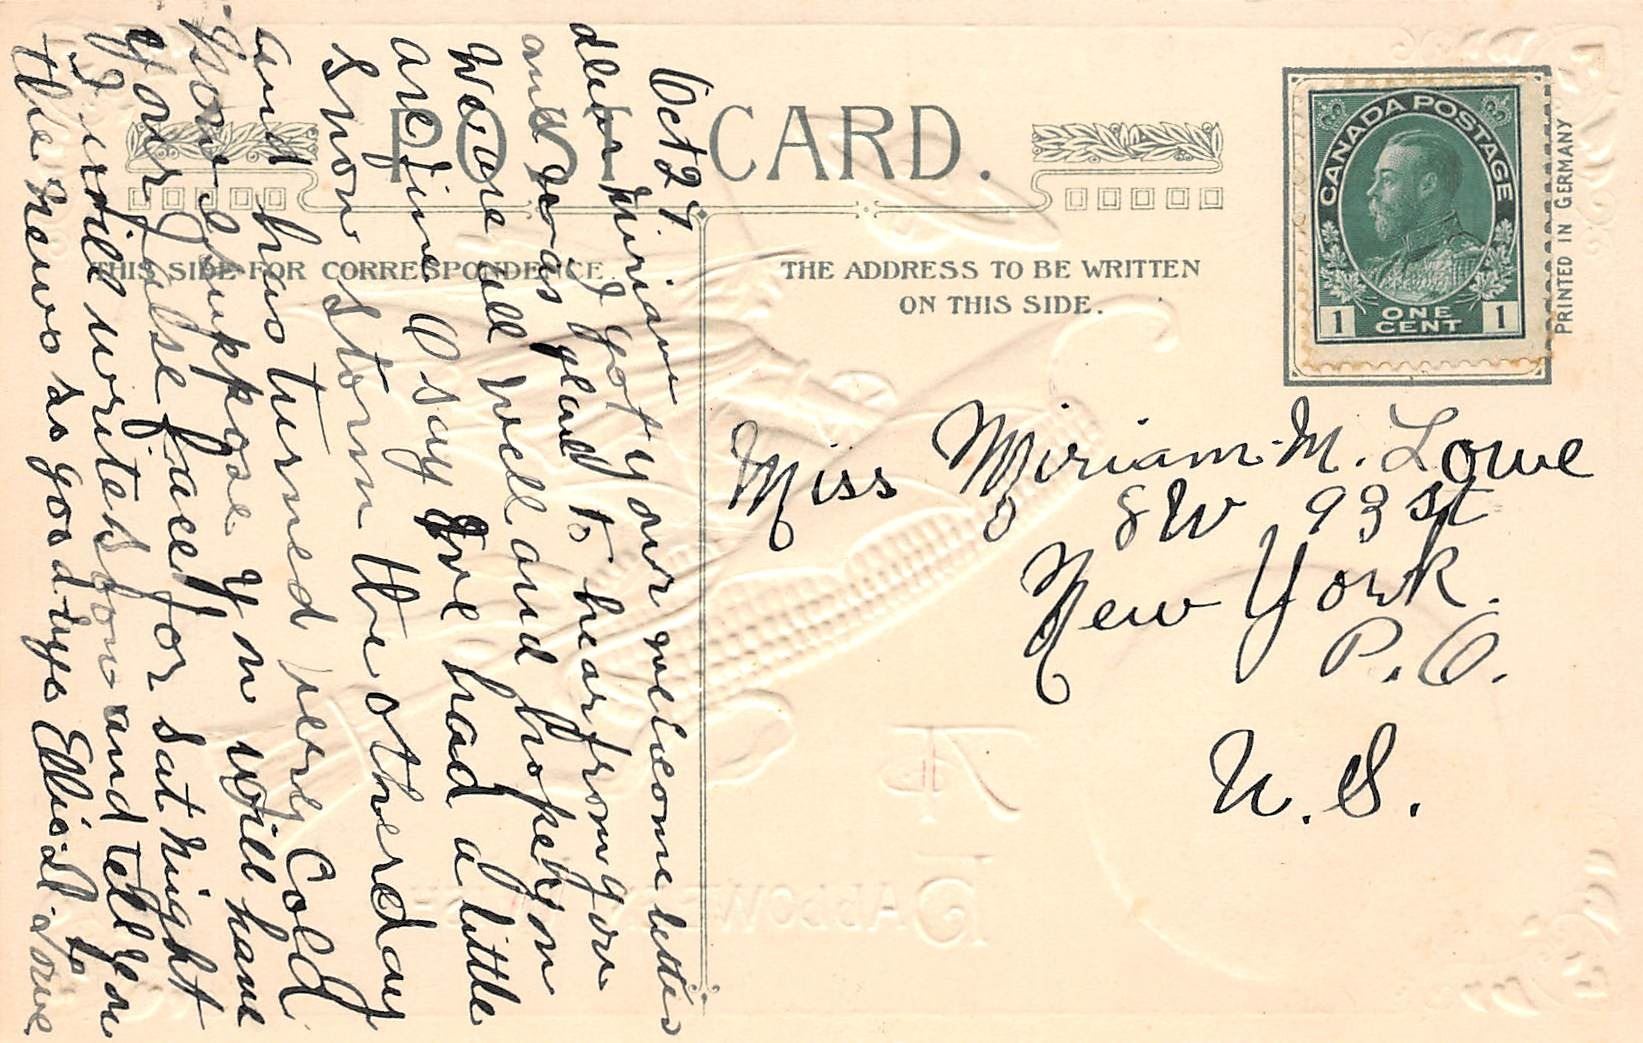 POST CARD.
THIS SIDE FOR CORRESPONDENCE.
THE ADDRESS TO BE WRITTEN
ON THIS SIDE.
CANADA POSTAGE
1 ONE CENT 1
PRINTED IN GERMANY
Oct 27
dear Miriam I got your welcome letter
and was glad to hear from you
We are all well and hope you
are fine O say we had a little
Snow storm the other day
and has turned very Cold
you suppose you will have
your false face for sat night
I will write soon and tell you
the news so good-bye Ellis L. Lowe
Miss Miriam M. Lowe
8 W 93 st
New York.
P.O.
U.S.
A
HALLOWE'EN